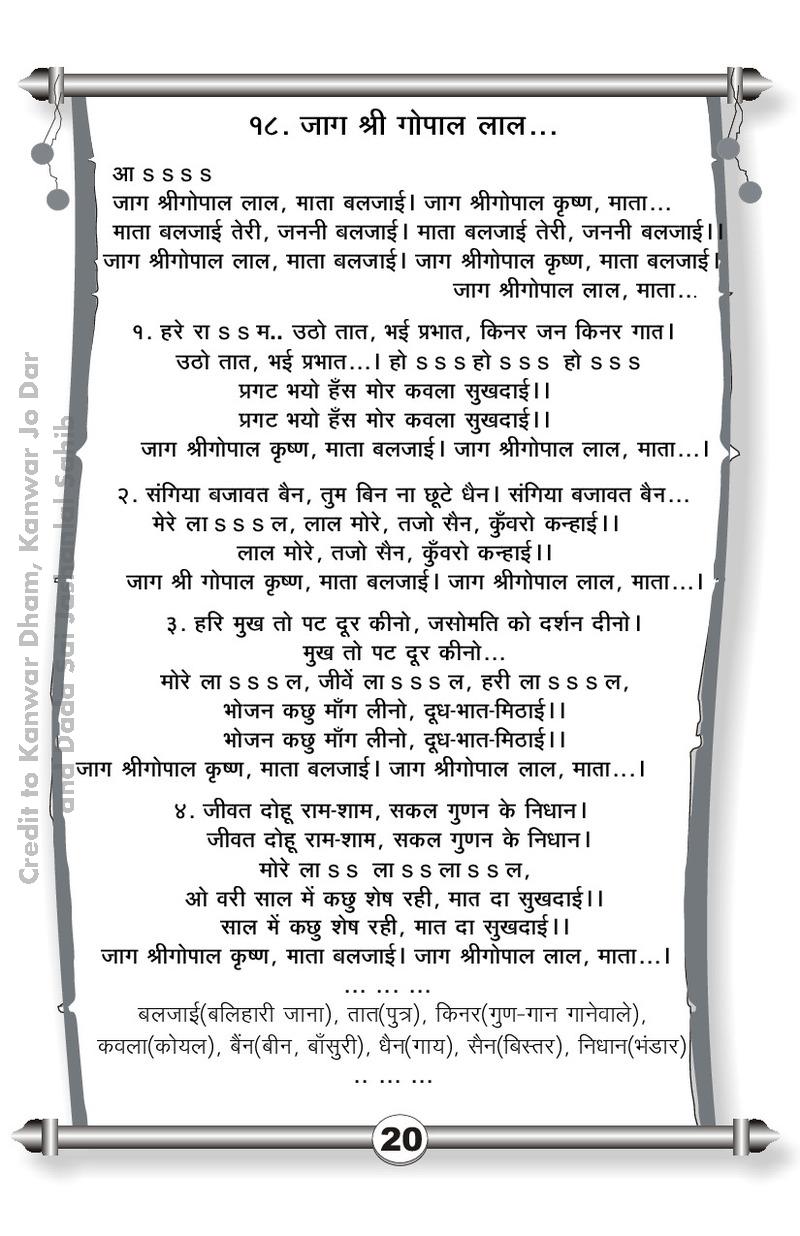 १८. जाग श्री गोपाल लाल...
आ ऽ ऽ ऽ ऽ
जाग श्रीगोपाल लाल, माता बलजाई। जाग श्रीगोपाल कृष्ण, माता...
माता बलजाई तेरी, जननी बलजाई। माता बलजाई तेरी, जननी बलजाई।।
जाग श्रीगोपाल लाल, माता बलजाई। जाग श्रीगोपाल कृष्ण, माता बलजाई।
जाग श्रीगोपाल लाल, माता...
१. हरे रा ऽ ऽ म.. उठो तात, भई प्रभात, किनर जन किनर गात।
उठो तात, भई प्रभात...। हो ऽ ऽ ऽ हो ऽ ऽ ऽ हो ऽ ऽ ऽ
प्रगट भयो हँस मोर कवला सुखदाई।।
प्रगट भयो हँस मोर कवला सुखदाई।।
जाग श्रीगोपाल कृष्ण, माता बलजाई। जाग श्रीगोपाल लाल, माता...।
२. संगिया बजावत बैन, तुम बिन ना छूटे धैन। संगिया बजावत बैन...
मेरे ला ऽ ऽ ऽ ल, लाल मोरे, तजो सैन, कुँवरो कन्हाई।।
लाल मोरे, तजो सैन, कुँवरो कन्हाई।।
जाग श्री गोपाल कृष्ण, माता बलजाई। जाग श्रीगोपाल लाल, माता...।
३. हरि मुख तो पट दूर कीनो, जसोमति को दर्शन दीनो।
मुख तो पट दूर कीनो...
मोरे ला ऽ ऽ ऽ ल, जीवें ला ऽ ऽ ऽ ल, हरी ला ऽ ऽ ऽ ल,
भोजन कछु माँग लीनो, दूध-भात-मिठाई।।
भोजन कछु माँग लीनो, दूध-भात-मिठाई।।
जाग श्रीगोपाल कृष्ण, माता बलजाई। जाग श्रीगोपाल लाल, माता...।
४. जीवत दोहू राम-शाम, सकल गुणन के निधान।
जीवत दोहू राम-शाम, सकल गुणन के निधान।
मोरे ला ऽ ऽ ला ऽ ऽ ला ऽ ऽ ल,
ओ वरी साल में कछु शेष रही, मात दा सुखदाई।।
साल में कछु शेष रही, मात दा सुखदाई।।
जाग श्रीगोपाल कृष्ण, माता बलजाई। जाग श्रीगोपाल लाल, माता...।
... ... ...
बलजाई(बलिहारी जाना), तात(पुत्र), किनर(गुण-गान गानेवाले),
कवला(कोयल), बैंन(बीन, बाँसुरी), धैन(गाय), सैन(बिस्तर), निधान(भंडार)
.. ... ...
20
Credit to Kanwar Dham, Kanwar Jo Dar
and Dada Sai Jashanlal Sahib